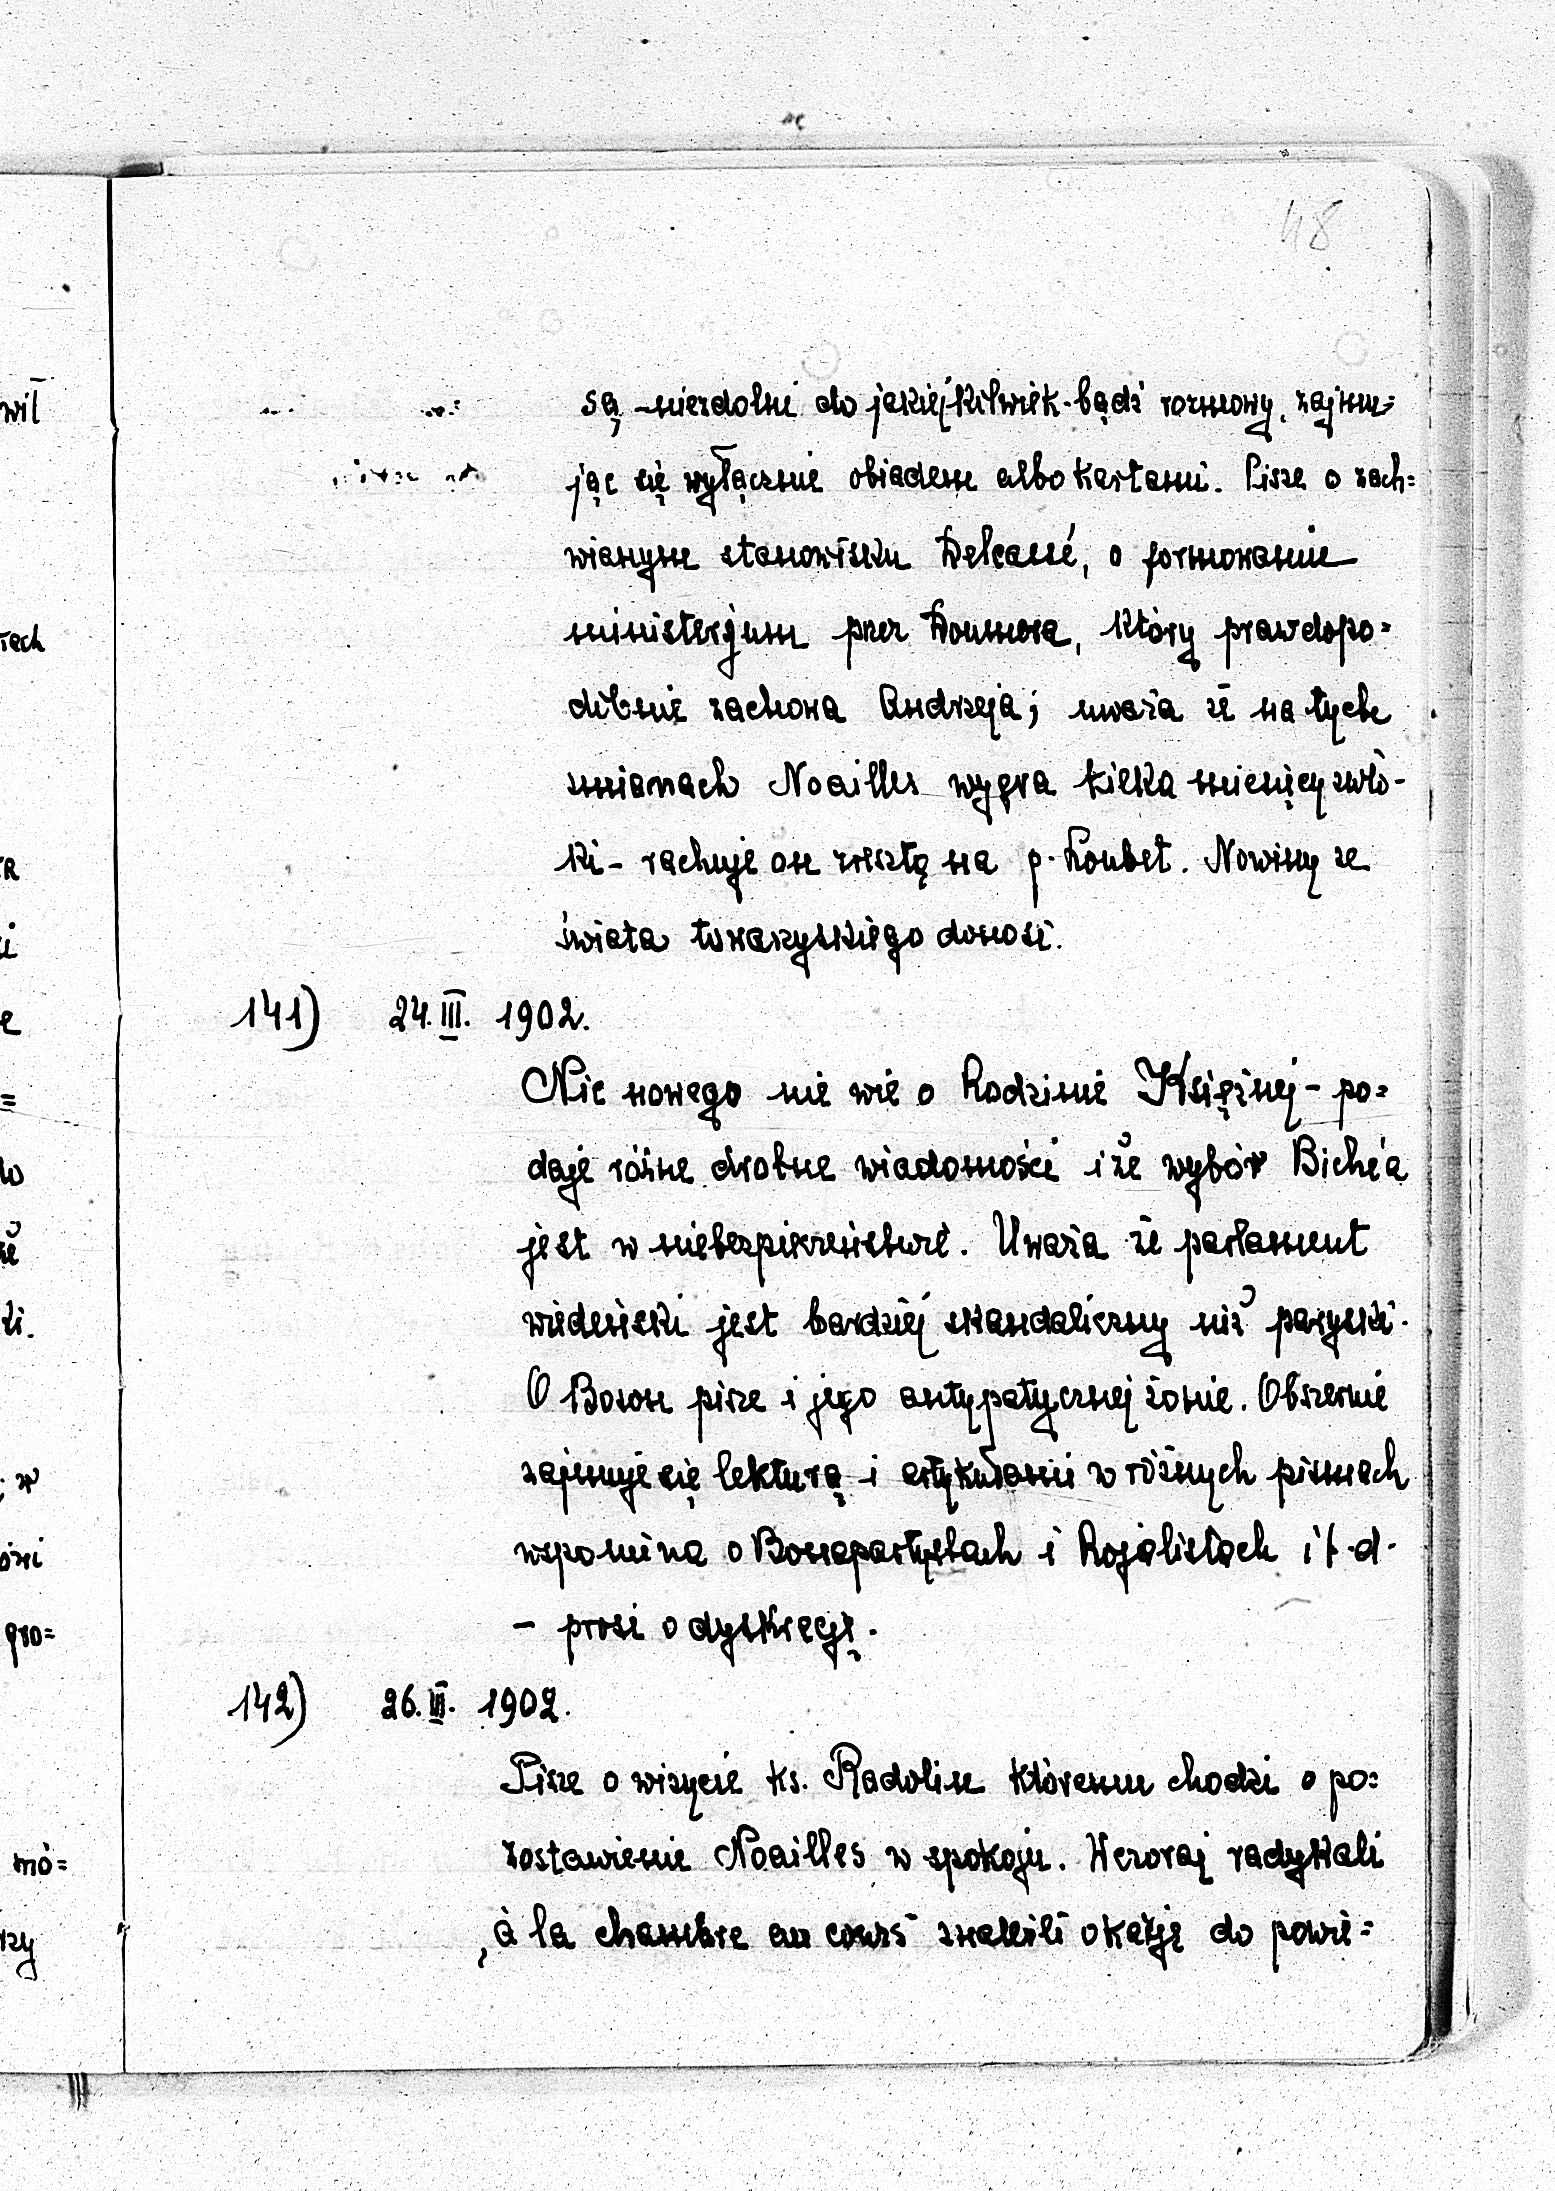 48
są niezdolni do jakiejkilwiek-bądź rozmowy, zajmu=
jąc się wyłącznie obiadem albo kartami. Pisze o zach=
wianym stanowisku Delcassé, o formowanie
ministerjum przez Doumera, który prawdopo=
dobnie zachowa Andrzeja; uważa że na tych
zmianach Noailles wygra kilka miesięcy zwło-
ki – rachuje on zresztą na p. Loubet. Nowiny ze
świata towarzyskiego donosi.
141) 24.III. 1902.
Nic nowego nie wie o Rodzinie Księżnej – po=
daje różne drobne wiadomości i że wybór Biché'a
jest w niebezpieczeństwie. Uważa że parlament
wiedeński jest bardziej skandaliczny niż paryski.
O Boson pisze i jego antypatycznej żonie. Obszernie
zajmuje się lekturą i artykułami w różnych pismach
wspomina o Bonapartystach i Rojalistach i t.d.
– prosi o dyskrecję.
142) 26.III. 1902.
Pisze o wizycie ks. Radolin któremu chodzi o po=
zostawienie Noailles w spokoju. Wczoraj radykali
à la chambre au cours znaleźli okazję do powie=
wil
rach
R
i
e
=
że
ki.
; w
gro=
mó=
rzy